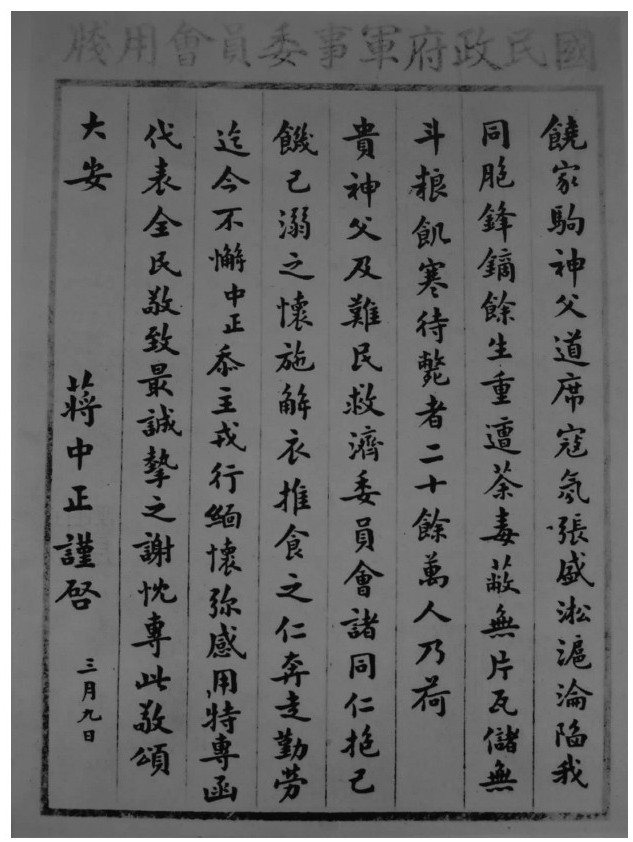 國民政府軍事委員會用牋
饒家駒神父道席寇氛張盛淞滬淪陷我
同胞鋒鏑餘生重遭荼毒蔽無片瓦儲無
斗粮飢寒待斃者二十餘萬人乃荷
貴神父及難民救濟委員會諸同仁抱己
饑己溺之懷施解衣推食之仁奔走勤勞
迄今不懈中正忝主戎行緬懷弥感用特專函
代表全民敬致最誠摯之謝忱專此敬頌
大安
蔣中正謹啓
三月九日